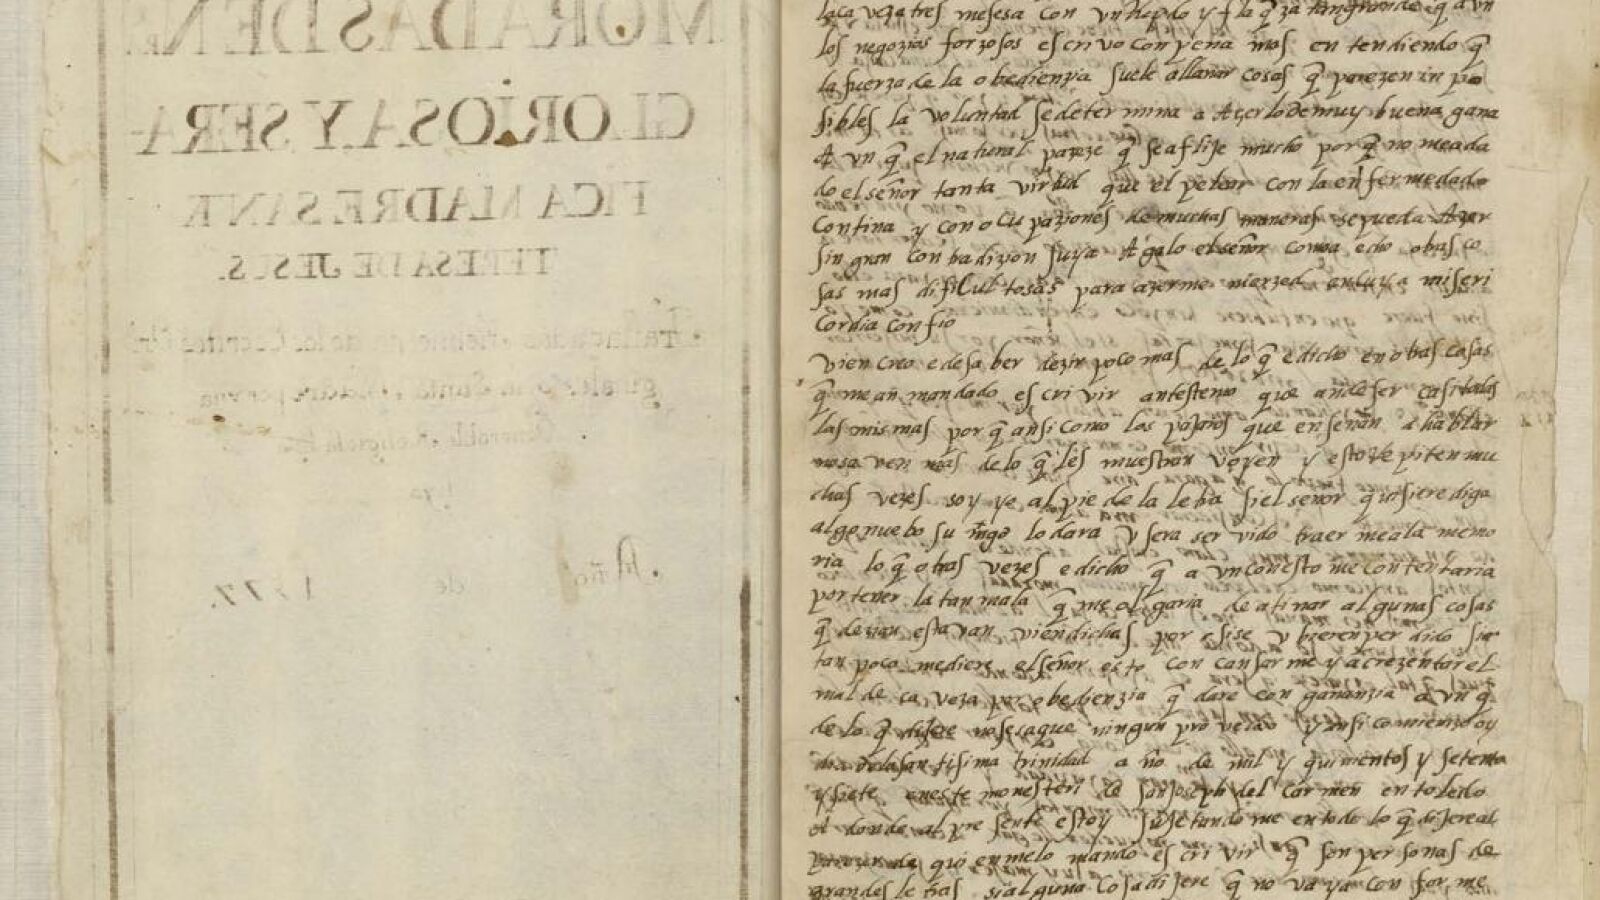 MORADAS DE N.
GLORIOSA Y SERA-
FICA MADRE SANT
TERESA DE JESUS.
Año de 1577.
la caveza tres meses a con un y flaqza tan grande q aun
los negozios forzosos escrivo con pena mas entendiendo q
la fuerza de la obedienzia suele allanar cosas q parezen inpo
sibles la voluntad se determina a açerlo de muy buena gana
Aunq el natural pareze q se aflije mucho porq no mea da
do el señor tanta virtud que el pelear con la enfermedad
contina y con ocupaziones de muchas maneras se pueda Azer
sin gran contradizion suya Agalo el señor como a echo otras co
sas mas dificultosas para azerme merzed en cuya miseri
cordia confio
vien creo e de saber dezir poco mas de lo q e dicho en otras cosas
q me an mandado escrivir antes temo que an de ser casi todas
las mismas porq ansi como los pajaros que enseñan a hablar
no saven mas de lo q les muestran u oyen y esto repiten mu
chas vezes soy yo al pie de la letra si el señor quisiere diga
algo nuebo su mgd lo dara u sera servido traerme a la memo
ria lo q otras vezes e dicho q aun con esto me contentaria
por tener la tan mala q me olgaria de atinar algunas cosas
q dezian estavan vien dichas por si se ubieren perdido si
tanpoco me diere el señor esto con cansarme y acrezentar el
mal de caveza por obedienzia q dare con gananzia aunq
de lo q dijere no se saque ningun provecho y ansi comienzo oy
dia de la santisima trinidad año de mil y quinientos y setenta
y siete en este monesterio de san Joseph del carmen en toledo
A donde al presente estoy sujetandome en todo lo q dijere al
parezer de quien me lo mando escrivir q son personas de
grandes letras si alguna cosa dijere q no vaya conforme